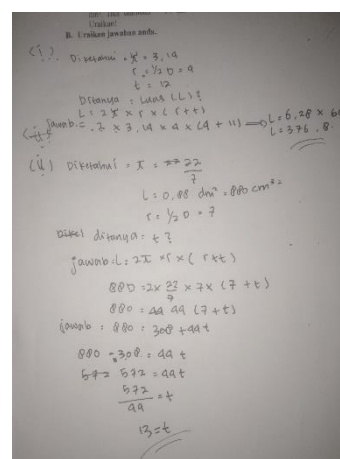 Uraikan!
B. Uraikan jawaban anda.
(i). Diketahui = π = 3,14
r = 1/2 D = 4
t = 12
Ditanya = Luas (L)?
L = 2π × r × (r+t)
Jawab = 2 × 3,14 × 4 × (4 + 11) ⟹ L = 6,28 × 6
L = 376,8
(ii) Diketahui = π = 22/7
L = 0,88 dm² = 880 cm²
r = 1/2 D = 7
ditanya = t?
jawab = L = 2π × r × (r+t)
880 = 2 × 22/7 × 7 × (7 + t)
880 = 44 (7+t)
jawab = 880 = 308 + 44t
880 - 308 = 44t
572 = 44t
572/44 = t
13 = t